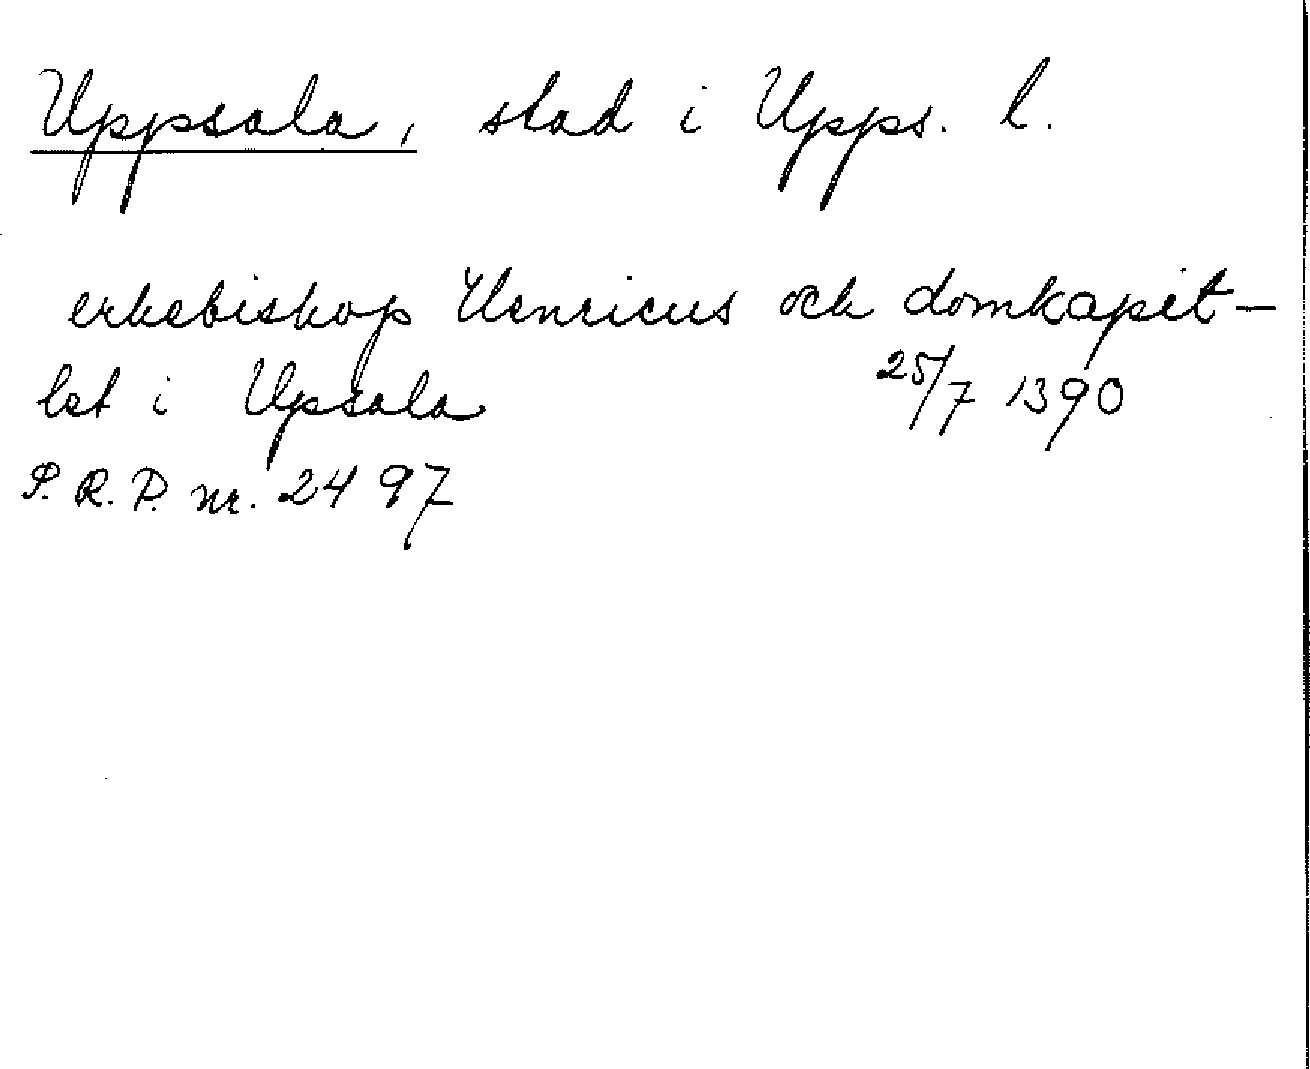 Uppsala, stad i Upps. l.
erkebiskop Henricus och domkapit-
let i Upsala 25/7 1390
P. R. P. nr. 2497